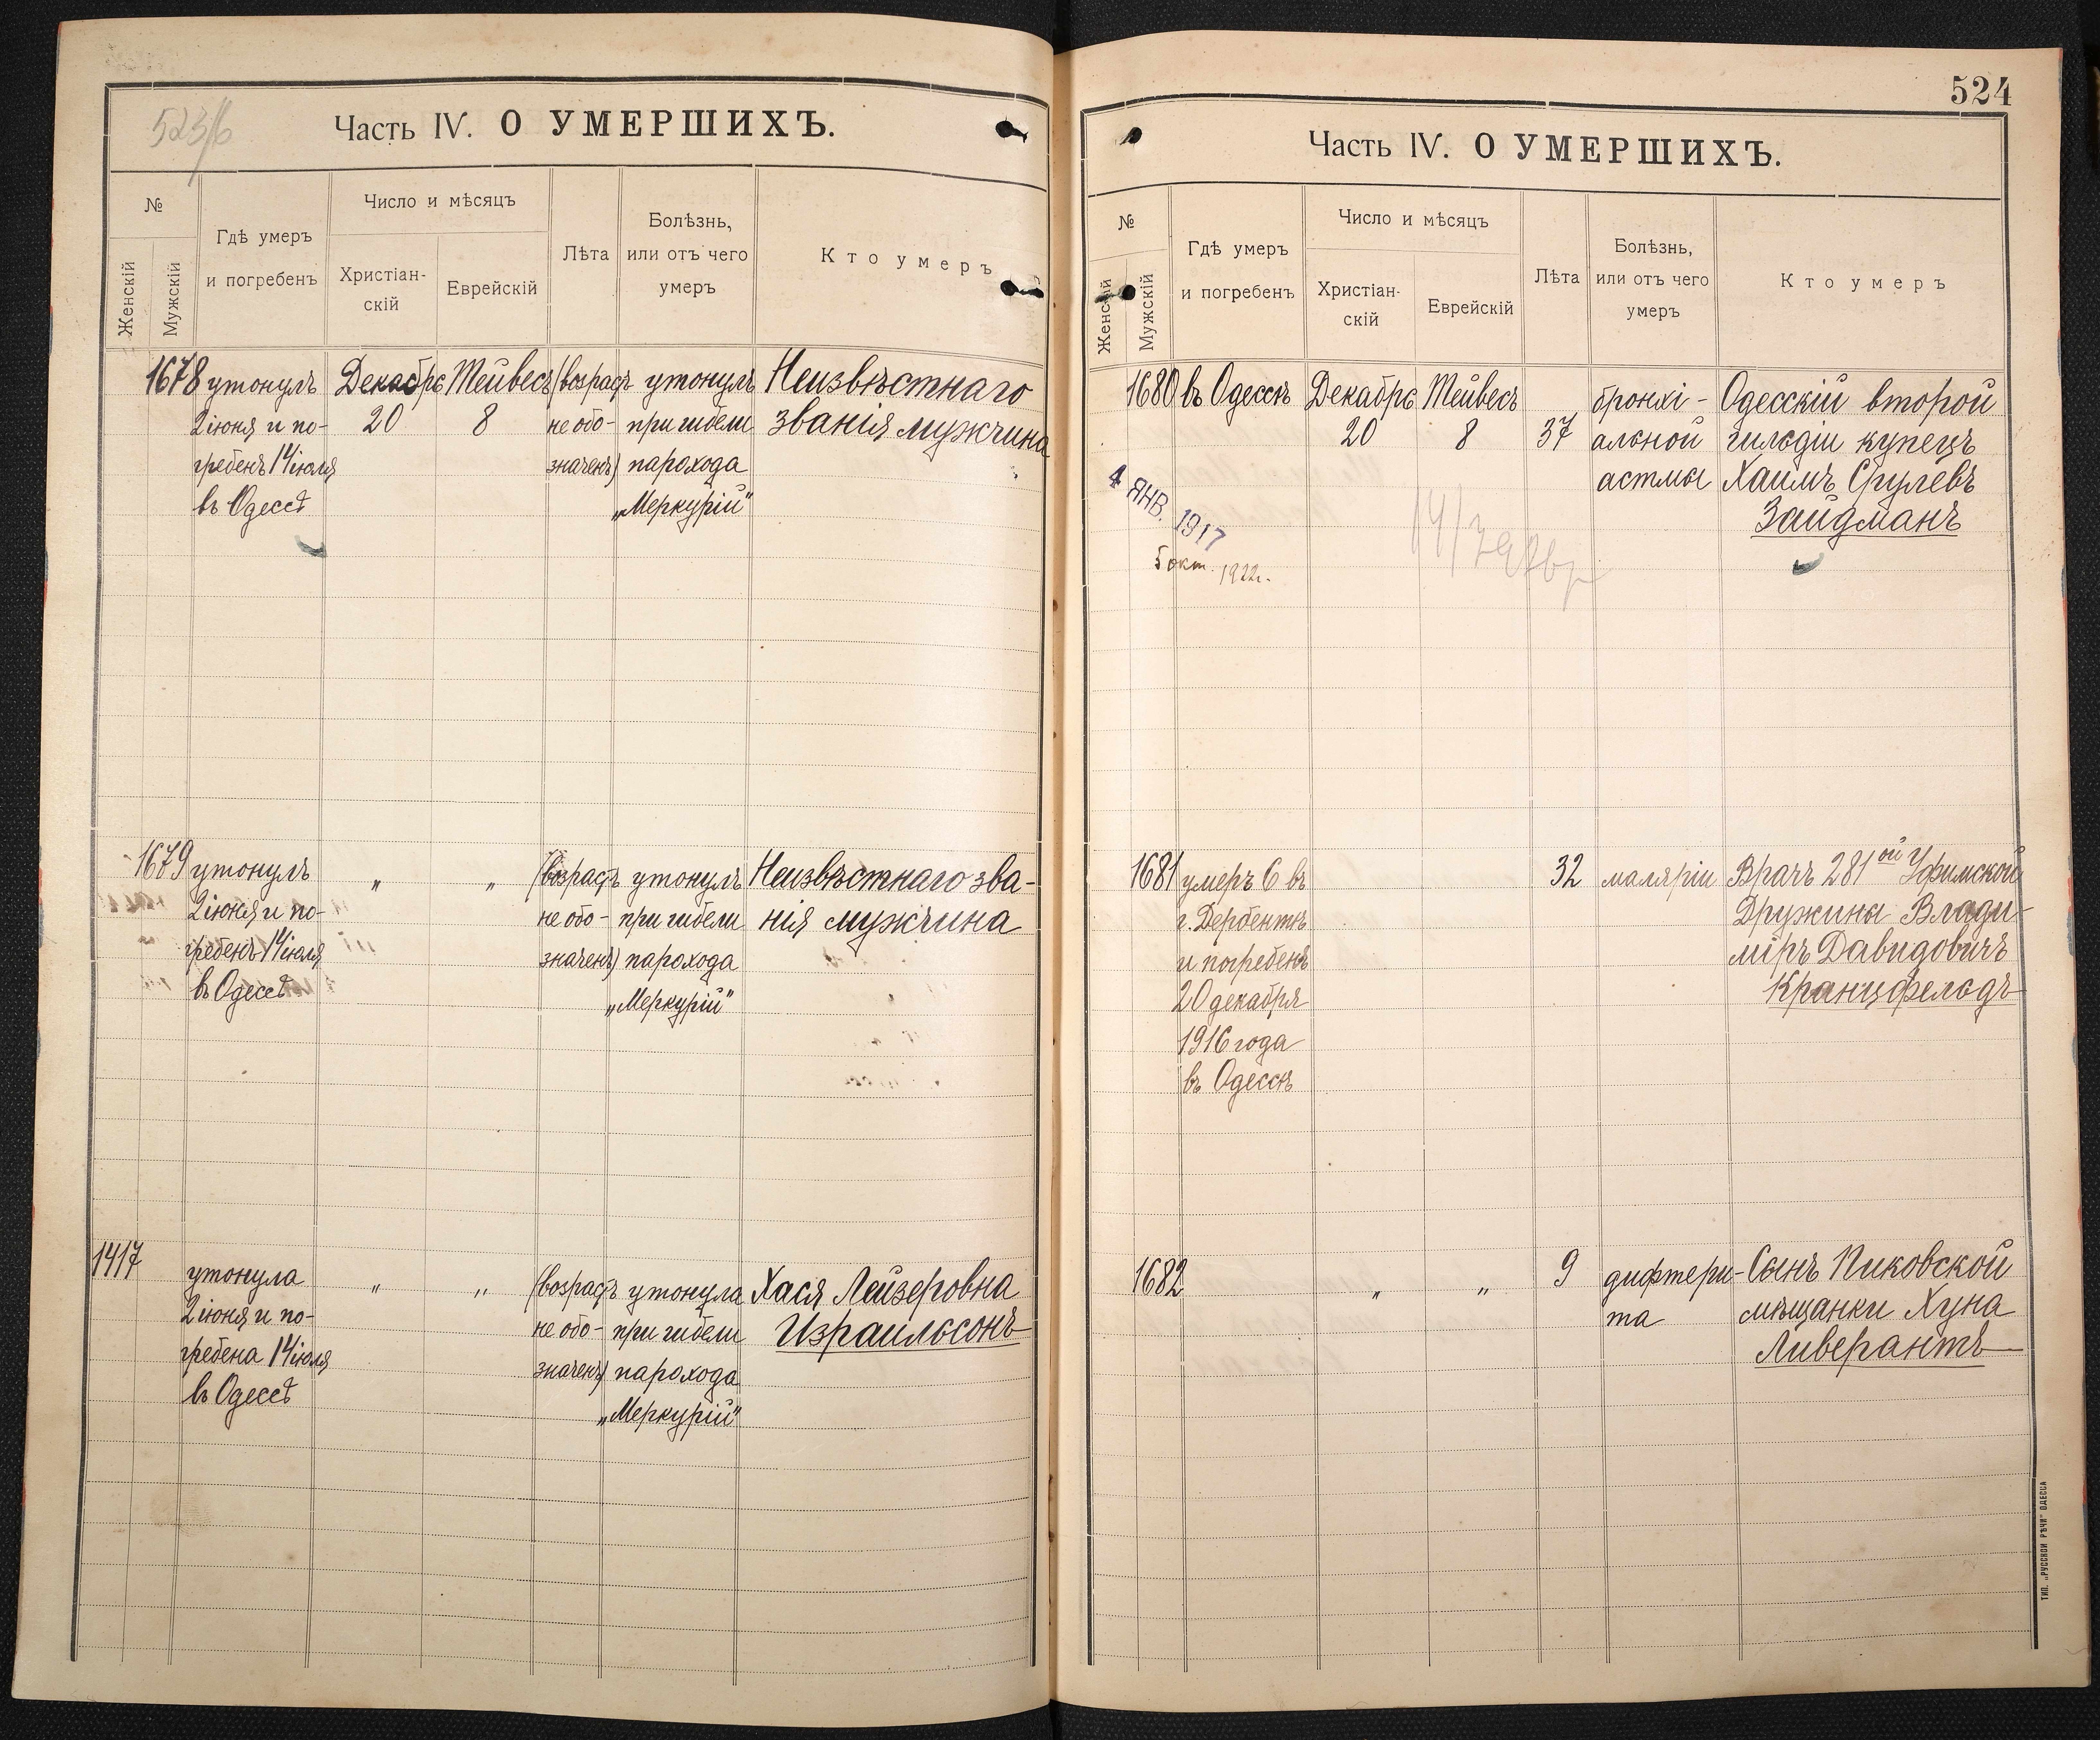 523/б
Часть IV. О УМЕРШИХЪ.
№
Женскій
Мужскій
Гдѣ умеръ
и погребенъ
Число и мѣсяцъ
Христіан-
скій
Еврейскій
Лѣта
Болѣзнь,
или отъ чего
умеръ
Кто умеръ
1678 утонулъ Декабрь Тейвесъ (возрастъ утонулъ Неизвѣстнаго
2 іюня и по- 20 8 не обо- при гибели званія мужчина
гребенъ 14 іюля значенъ) парохода
въ Одессѣ „Меркурій"
1679 утонулъ " " (возрастъ утонулъ Неизвѣстнаго зва-
2 іюня и по- не обо- при гибели нія мужчина
гребенъ 14 іюля значенъ) парохода
въ Одессѣ „Меркурій"
1417 утонула " " (возрастъ утонула Хася Лейзеровна
2 іюня и по- не обо- при гибели Израильсонъ
гребена 14 іюля значенъ) парохода
въ Одессѣ „Меркурій"
524
Часть IV. О УМЕРШИХЪ.
№
Женскій
Мужскій
Гдѣ умеръ
и погребенъ
Число и мѣсяцъ
Христіан-
скій
Еврейскій
Лѣта
Болѣзнь,
или отъ чего
умеръ
Кто умеръ
1680 въ Одессѣ Декабрь Тейвесъ бронхі- Одесскій второй
20 8 37 альной гильдіи купецъ
астмы Хаимъ Срулевъ
Зайдманъ
4 ЯНВ. 1917
5 окт. 1922г.
1681 умеръ 6 въ 32 маляріи Врачъ 281ой Уфимской
г. Дербентѣ Дружины Влади-
и погребенъ міръ Давидовичъ
20 декабря Кранцфельдъ
1916 года
въ Одессѣ
1682 " " 9 дифтери- Сынъ Пиковской
та мѣщанки Хуна
Ливерантъ
ТИП. „РУССКОЙ РѢЧИ" ОДЕССА